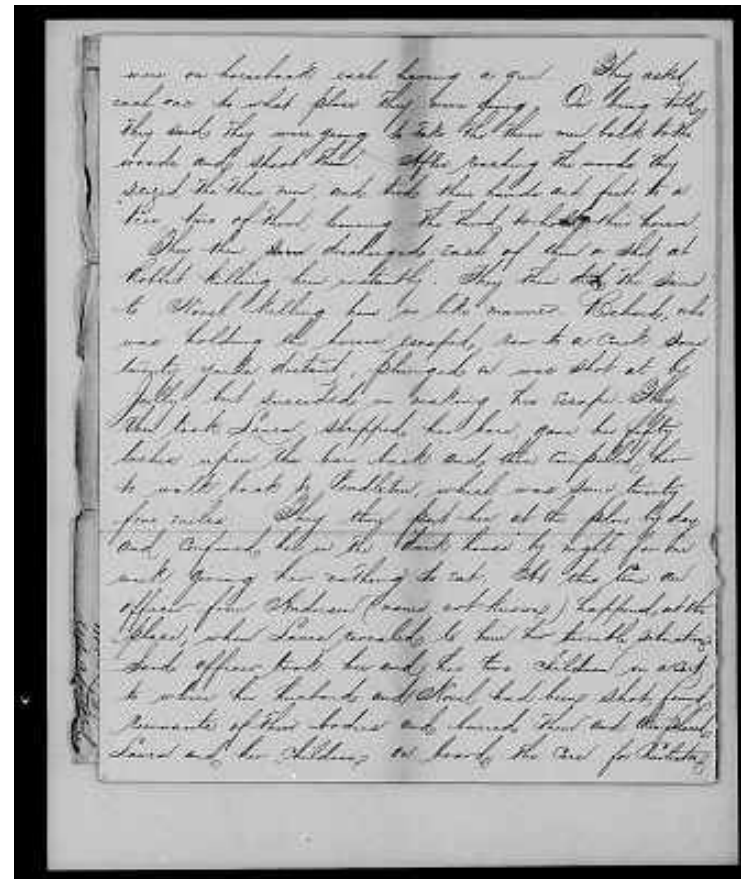 were on horseback each having a gun They asked
each one to what place they were going. On being told
they said they were going to take the three men back to the
woods and shoot them. After reaching the woods they
seized the three men, and tied their hands and feet to a
tree two of them leaving the third to hold their horses.
They then discharged each of them a shot at
Robert killing him instantly. They then did the same
to Novel killing him in like manner. Richard, who
was holding the horses escaped, ran to a creek some
twenty yards distant, plunged in was shot at by
Jolly but succeeded in making his escape. They
then took Laura, stripped her bare, gave her fifty
lashes upon the bare back and then compelled her
to walk back to Pendleton, which was some twenty
four miles. They put her at the plow by day
and confined her in the Dark house by night for one
week giving her nothing to eat. At this time an
officer from Anderson (name not known) happened at the
place, when Laura revealed to him her terrible situation
Said officer took her and her two children in a cart
to where her husband and Novel had been shot found
remnants of their bodies and buried them and then placed
Laura and her children on board the cars for